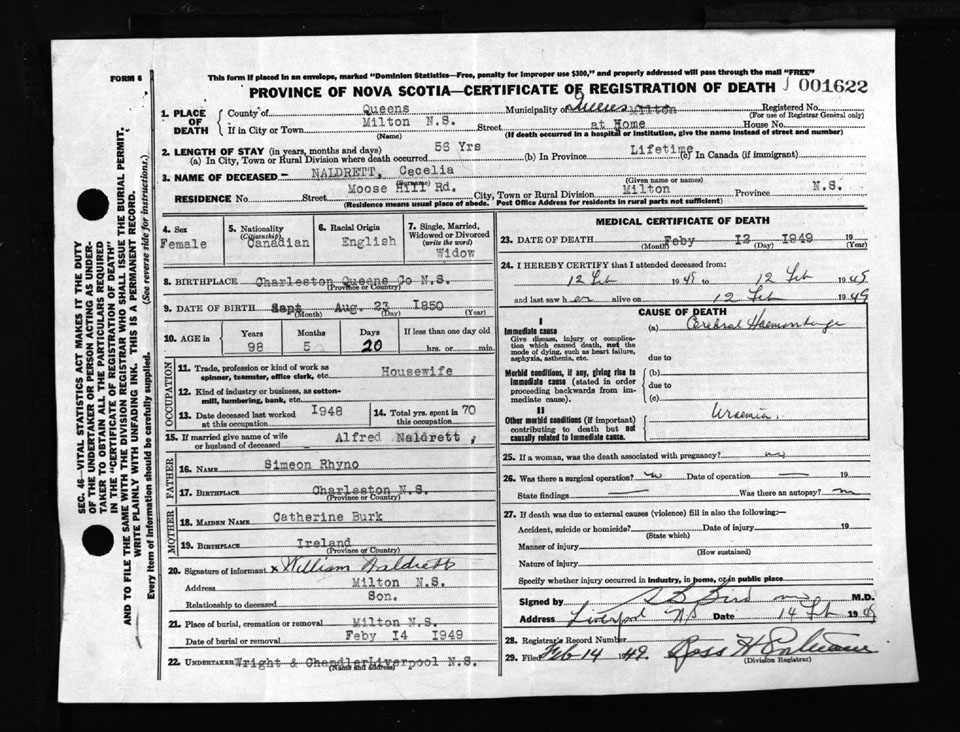 FORM 6
This form if placed in an envelope, marked "Dominion Statistics—Free, penalty for improper use $300," and properly addressed will pass through the mail "FREE"
PROVINCE OF NOVA SCOTIA—CERTIFICATE OF REGISTRATION OF DEATH 001622
1. PLACE OF DEATH
County of Queens Municipality of Queens Milton Registered No.
(For use of Registrar General only)
If in City or Town Milton N.S. Street at Home House No.
(Name) (If death occurred in a hospital or institution, give the name instead of street and number)
2. LENGTH OF STAY (in years, months and days)
(a) In City, Town or Rural Division where death occurred 56 Yrs (b) In Province Lifetime (c) In Canada (if immigrant)
3. NAME OF DECEASED— NALDRETT, Cecelia
(Surname) (Given name or names)
RESIDENCE No. Street Moose Hill Rd. City, Town or Rural Division Milton Province N.S.
(Residence means usual place of abode. Post Office Address for residents in rural parts not sufficient)
4. Sex Female
5. Nationality (Citizenship) Canadian
6. Racial Origin English
7. Single, Married, Widowed or Divorced (write the word) Widow
8. BIRTHPLACE Charleston Queens Co N.S.
(Province or Country)
9. DATE OF BIRTH Sept Aug. 23 1850
(Month) (Day) (Year)
10. AGE in Years 98 Months 5 Days 20 If less than one day old hrs. or min.
OCCUPATION
11. Trade, profession or kind of work as spinner, teamster, office clerk, etc. Housewife
12. Kind of industry or business, as cotton-mill, lumbering, bank, etc.
13. Date deceased last worked at this occupation 1948
14. Total yrs. spent in this occupation 70
15. If married give name of wife or husband of deceased Alfred Naldrett,
FATHER
16. NAME Simeon Rhyno
17. BIRTHPLACE Charleston N.S.
(Province or Country)
MOTHER
18. MAIDEN NAME Catherine Burk
19. BIRTHPLACE Ireland
(Province or Country)
20. Signature of informant x William Naldrett
Address Milton N.S.
Relationship to deceased Son.
21. Place of burial, cremation or removal Milton N.S.
Date of burial or removal Feby 14 1949
22. UNDERTAKER Wright & Chandler Liverpool N.S.
(Name and address)
MEDICAL CERTIFICATE OF DEATH
23. DATE OF DEATH Feby 12 1949 19
(Month) (Day) (Year)
24. I HEREBY CERTIFY that I attended deceased from:
12 Feb 1949 to 12 Feb 1949
and last saw her alive on 12 Feb 1949
CAUSE OF DEATH
I
Immediate cause (a) Cerebral Haemorrhage
Give disease, injury or complication which caused death, not the mode of dying, such as heart failure, asphyxia, asthenia, etc.
due to
Morbid conditions, if any, giving rise to immediate cause (stated in order proceeding backwards from immediate cause).
(b)
due to
(c)
II
Other morbid conditions (if important) contributing to death but not causally related to immediate cause. Uraemia.
25. If a woman, was the death associated with pregnancy? no
26. Was there a surgical operation? no Date of operation — 19
State findings — Was there an autopsy? no
27. If death was due to external causes (violence) fill in also the following:—
Accident, suicide or homicide? Date of injury 19
(State which)
Manner of injury
(How sustained)
Nature of injury
Specify whether injury occurred in industry, in home, or in public place
Signed by M.D.
Address Liverpool NS Date 14 Feb 1949
28. Registrar's Record Number
29. Filed Feb 14 1949. Ross H
(Division Registrar)
SEC. 46—VITAL STATISTICS ACT MAKES IT THE DUTY
OF THE UNDERTAKER OR PERSON ACTING AS UNDER-
TAKER TO OBTAIN ALL THE PARTICULARS REQUIRED
IN THE "CERTIFICATE OF REGISTRATION OF DEATH"
AND TO FILE THE SAME WITH THE DIVISION REGISTRAR WHO SHALL ISSUE THE BURIAL PERMIT.
WRITE PLAINLY WITH UNFADING INK. THIS IS A PERMANENT RECORD.
Every item of information should be carefully supplied. (See reverse side for instructions.)